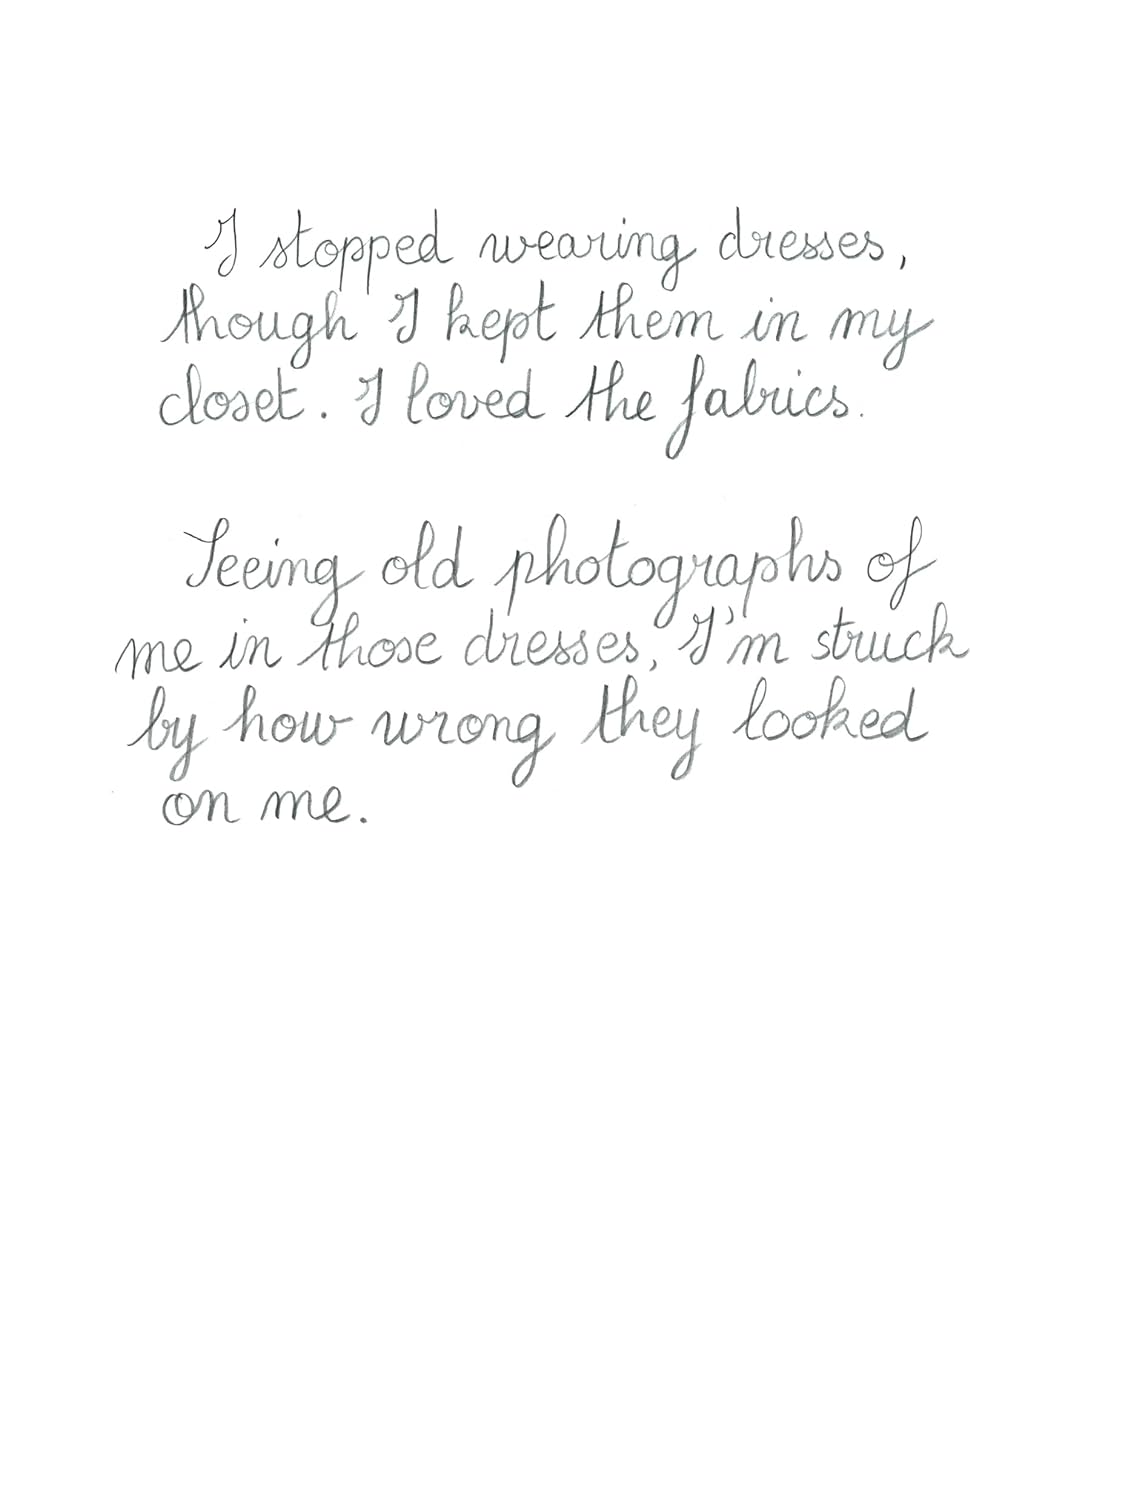 I stopped wearing dresses,
though I kept them in my
closet. I loved the fabrics.
Seeing old photographs of
me in those dresses, I'm struck
by how wrong they looked
on me.